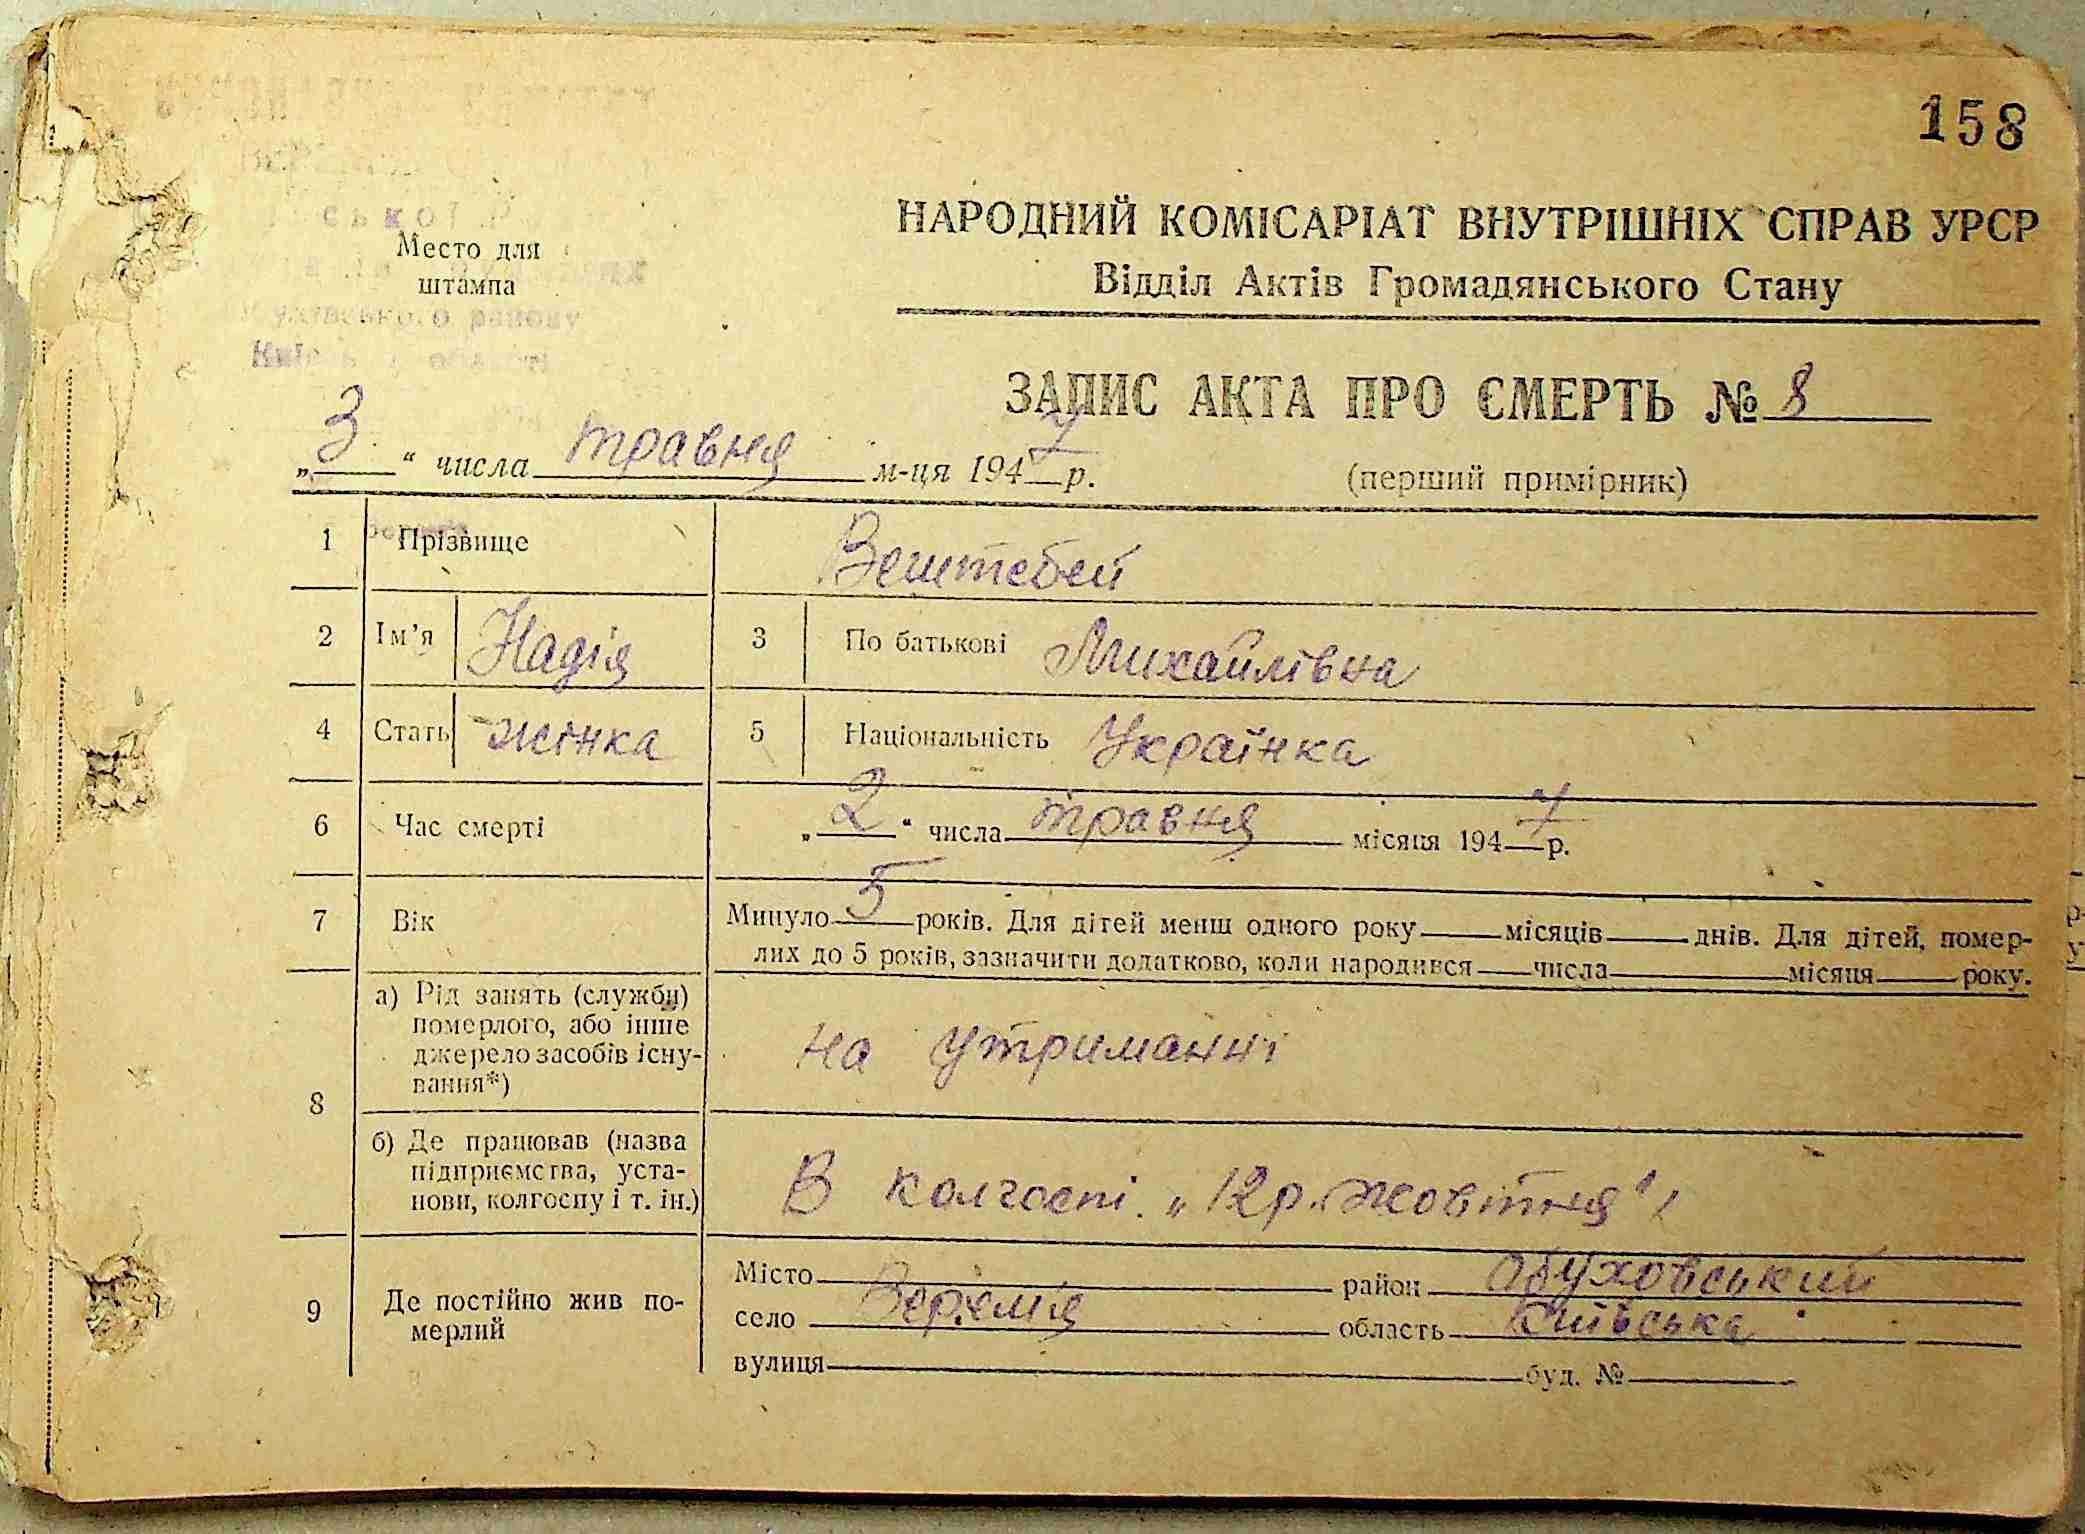 158
НАРОДНИЙ КОМІСАРІАТ ВНУТРІШНІХ СПРАВ УРСР
Відділ Актів Громадянського Стану
Место для
штампа
ЗАПИС АКТА ПРО СМЕРТЬ № 8
„3“ числа травня м-ця 1947 р.
(перший примірник)
1 Прізвище Вештебей
2 Ім’я Надія 3 По батькові Михайлівна
4 Стать жінка 5 Національність Українка
6 Час смерті „2“ числа травня місяця 1947 р.
7 Вік Минуло 5 років. Для дітей менш одного року місяців днів. Для дітей, помер-
лих до 5 років, зазначити додатково, коли народився числа місяця року.
8 а) Рід занять (служби)
померлого, або інше
джерело засобів існу-
вання*)
на утриманні
б) Де працював (назва
підприємства, уста-
нови, колгоспу і т. ін.)
В колгоспі „12 р. жовтня"
9 Де постійно жив по-
мерлий
Місто район Обуховський
село Веремія область Київська
вулиця буд. №